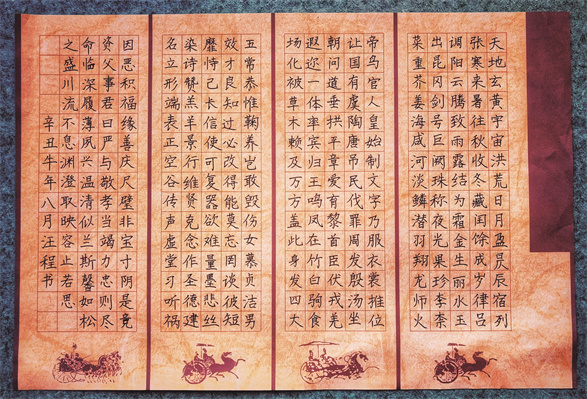 天地玄黄宇宙洪荒日月盈昃辰宿列
张寒来暑往秋收冬藏闰馀成岁律吕
调阳云腾致雨露结为霜金生丽水玉
出昆冈剑号巨阙珠称夜光果珍李柰
菜重芥姜海咸河淡鳞潜羽翔龙师火
帝鸟官人皇始制文字乃服衣裳推位
让国有虞陶唐吊民伐罪周发殷汤坐
朝问道垂拱平章爱育黎首臣伏戎羌
遐迩一体率宾归王鸣凤在竹白驹食
场化被草木赖及万方盖此身发四大
五常恭惟鞠养岂敢毁伤女慕贞洁男
效才良知过必改得能莫忘罔谈彼短
靡恃己长信使可复器欲难量墨悲丝
染诗赞羔羊景行维贤克念作圣德建
名立形端表正空谷传声虚堂习听祸
因恶积福缘善庆尺璧非宝寸阴是竞
资父事君曰严与敬孝当竭力忠则尽
命临深履薄夙兴温清似兰斯馨如松
之盛川流不息渊澄取映容止若思
辛丑牛年八月汪程书